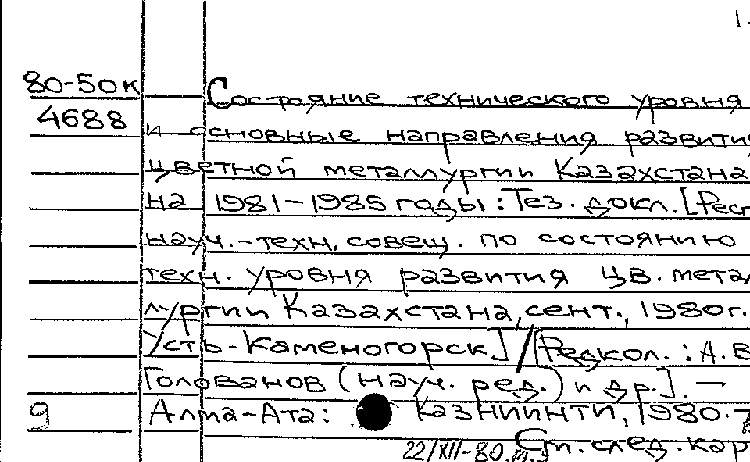 80-50к
4688
Состояние технического уровня
и основные направления развити
цветной металлургии Казахстана
на 1981-1985 годы: Тез. докл. [Респ
науч.-техн. совещ. по состоянию
техн. уровня развития цв. метал
лургии Казахстана, сент., 1980г.
Усть-Каменогорск] / [Редкол.: А.В
Голованов (науч. ред.) и др.]. —
9 Алма-Ата: КазНИИНТИ, 1980.
22/XII-80. См. след. кар